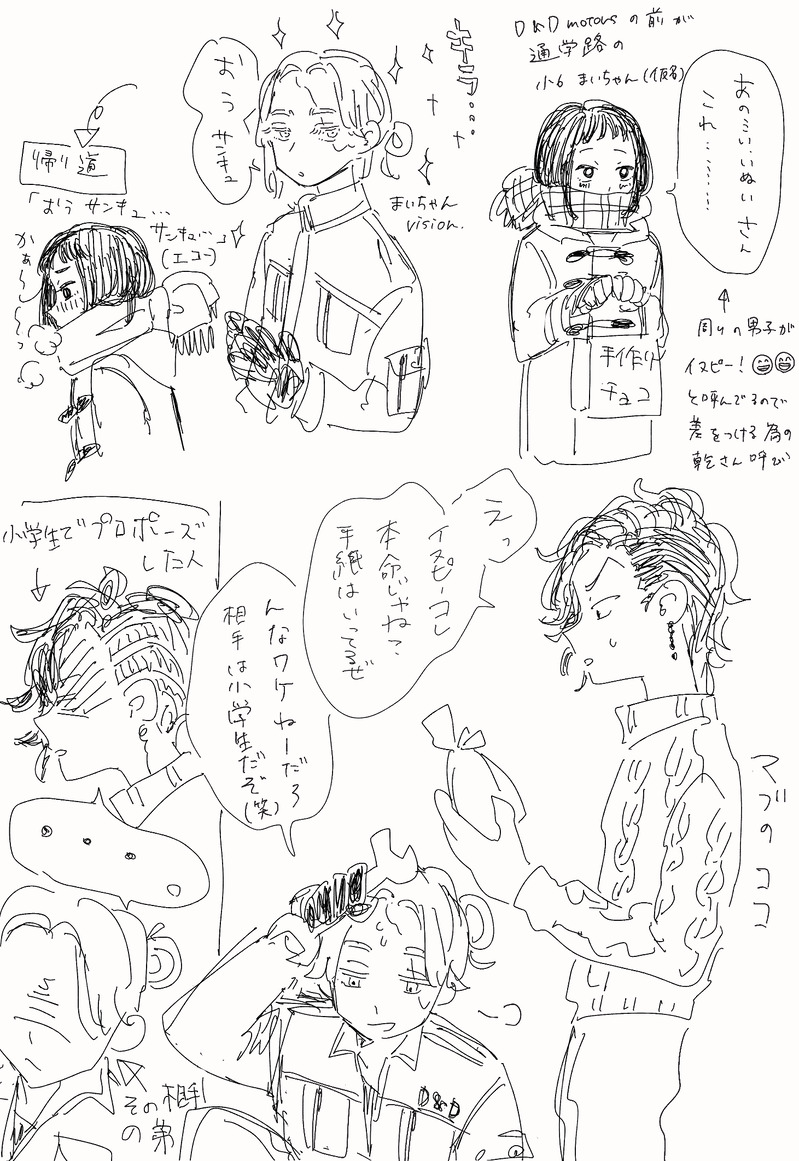 D&D motorsの前が
通学路の
小6 まいちゃん(仮名)
あのこい…いぬいさん
これ…………
↑
周りの男子が
イヌピー!😁😁
と呼んでるので
差をつける為の
乾さん呼び
手作り
チョコ
キラ…。
おう
サンキュ
まいちゃん
vision.
帰り道
「おう サンキュ…
サンキュ…」
(エコー)
かぁ〜〜っ
えっ
イヌピーコレ
本命じゃね?
手紙はいってるぜ
マブのココ
んなワケねーだろ
相手は小学生だぞ
(笑)
D&D
小学生でプロポーズ
した人
↓
・・・。
その相手
の弟